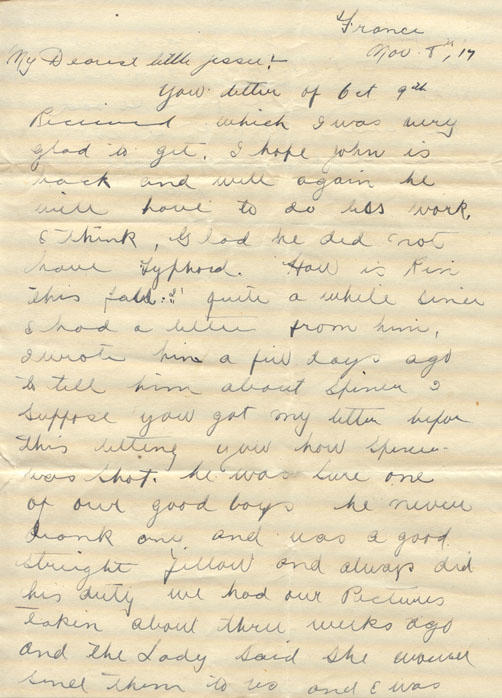 France
Nov. 8th, 17
My Dearest little jessie!-
Your letter of Oct 9th
Recieved which I was very
glad to get. I hope john is
back and well again he
will have to do less work,
I think, Glad he did not
have Typhord. How is Rin
this fall. quite a while since
I had a letter from him,
I wrote him a few days ago
to tell him about Spincer I
suppose you got my letter befor
this letting you how Spincer
was Shot. he was Sure one
of our good boys he never
drank any and was a good
straight fillow and always did
his duty we had our Pictures
takin about three weeks ago
and the Lady said she would
send them to us and I was